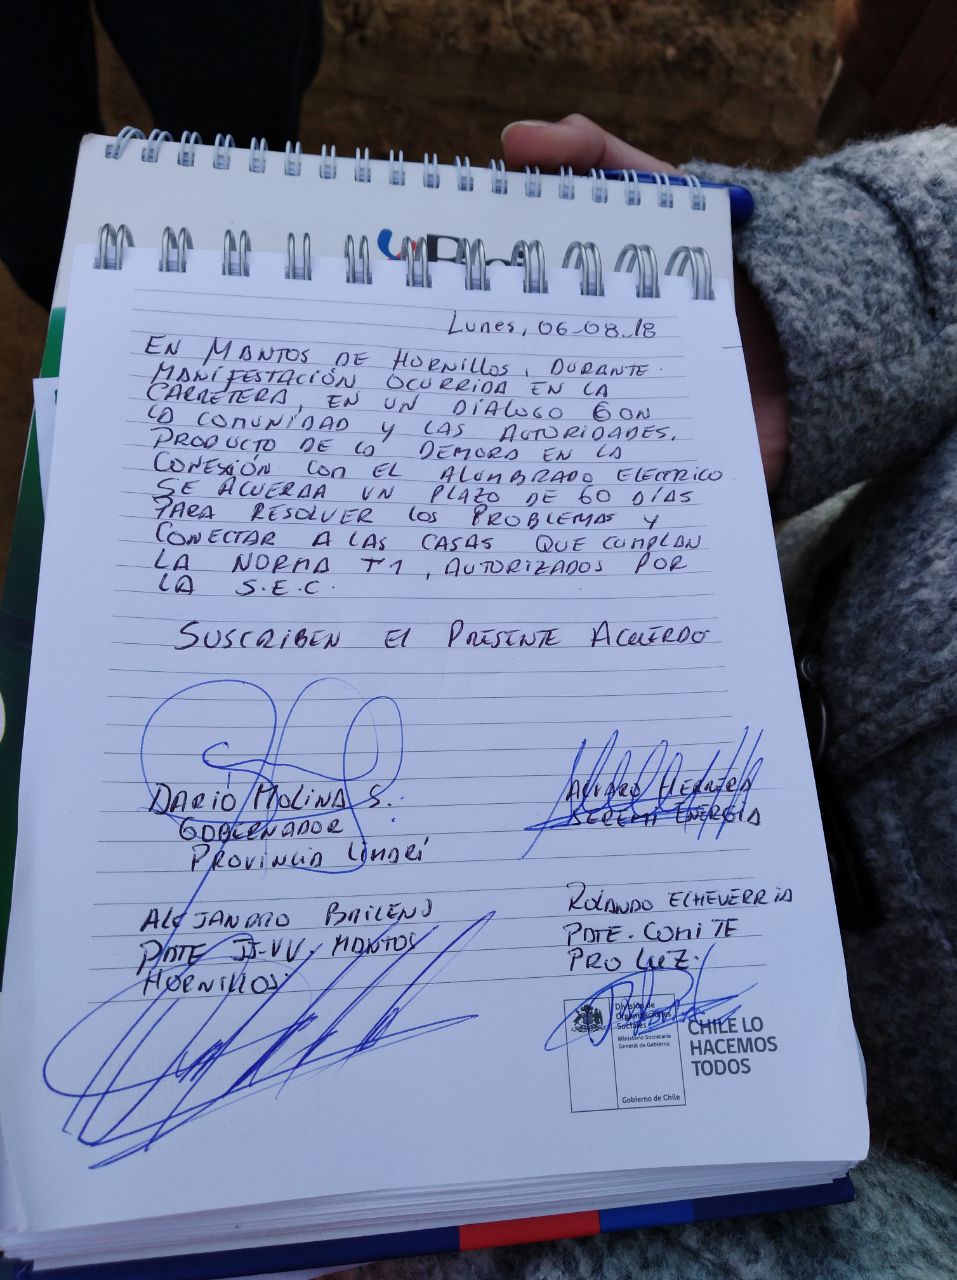 Lunes, 06-08-18
EN MANTOS DE HORNILLOS, DURANTE
MANIFESTACIÓN OCURRIDA EN LA
CARRETERA, EN UN DIALOGO CON
LA COMUNIDAD Y LAS AUTORIDADES.
PRODUCTO DE LO DEMORA EN LA
CONEXIÓN CON EL ALUMBRADO ELECTRICO
SE ACUERDA UN PLAZO DE 60 DÍAS
PARA RESOLVER LOS PROBLEMAS Y
CONECTAR A LAS CASAS QUE CUMPLAN
LA NORMA T1, AUTORIZADOS POR
LA S.E.C.
SUSCRIBEN El PRESENTE ACUERDO
DARIO MOLINA S.
GOBERNADOR
PROVINCIA LIMARÍ
ALVARO HERRERA
SEREMI ENERGIA
ALEJANDRO
PDTE JJ-VV. MANTOS
HORNILLOS
ROLANDO ECHEVERRIA
PDTE. COMITE
PRO LUZ.
División de
Organizaciones
Sociales
Ministerio Secretaría
General de Gobierno
Gobierno de Chile
CHILE LO
HACEMOS
TODOS